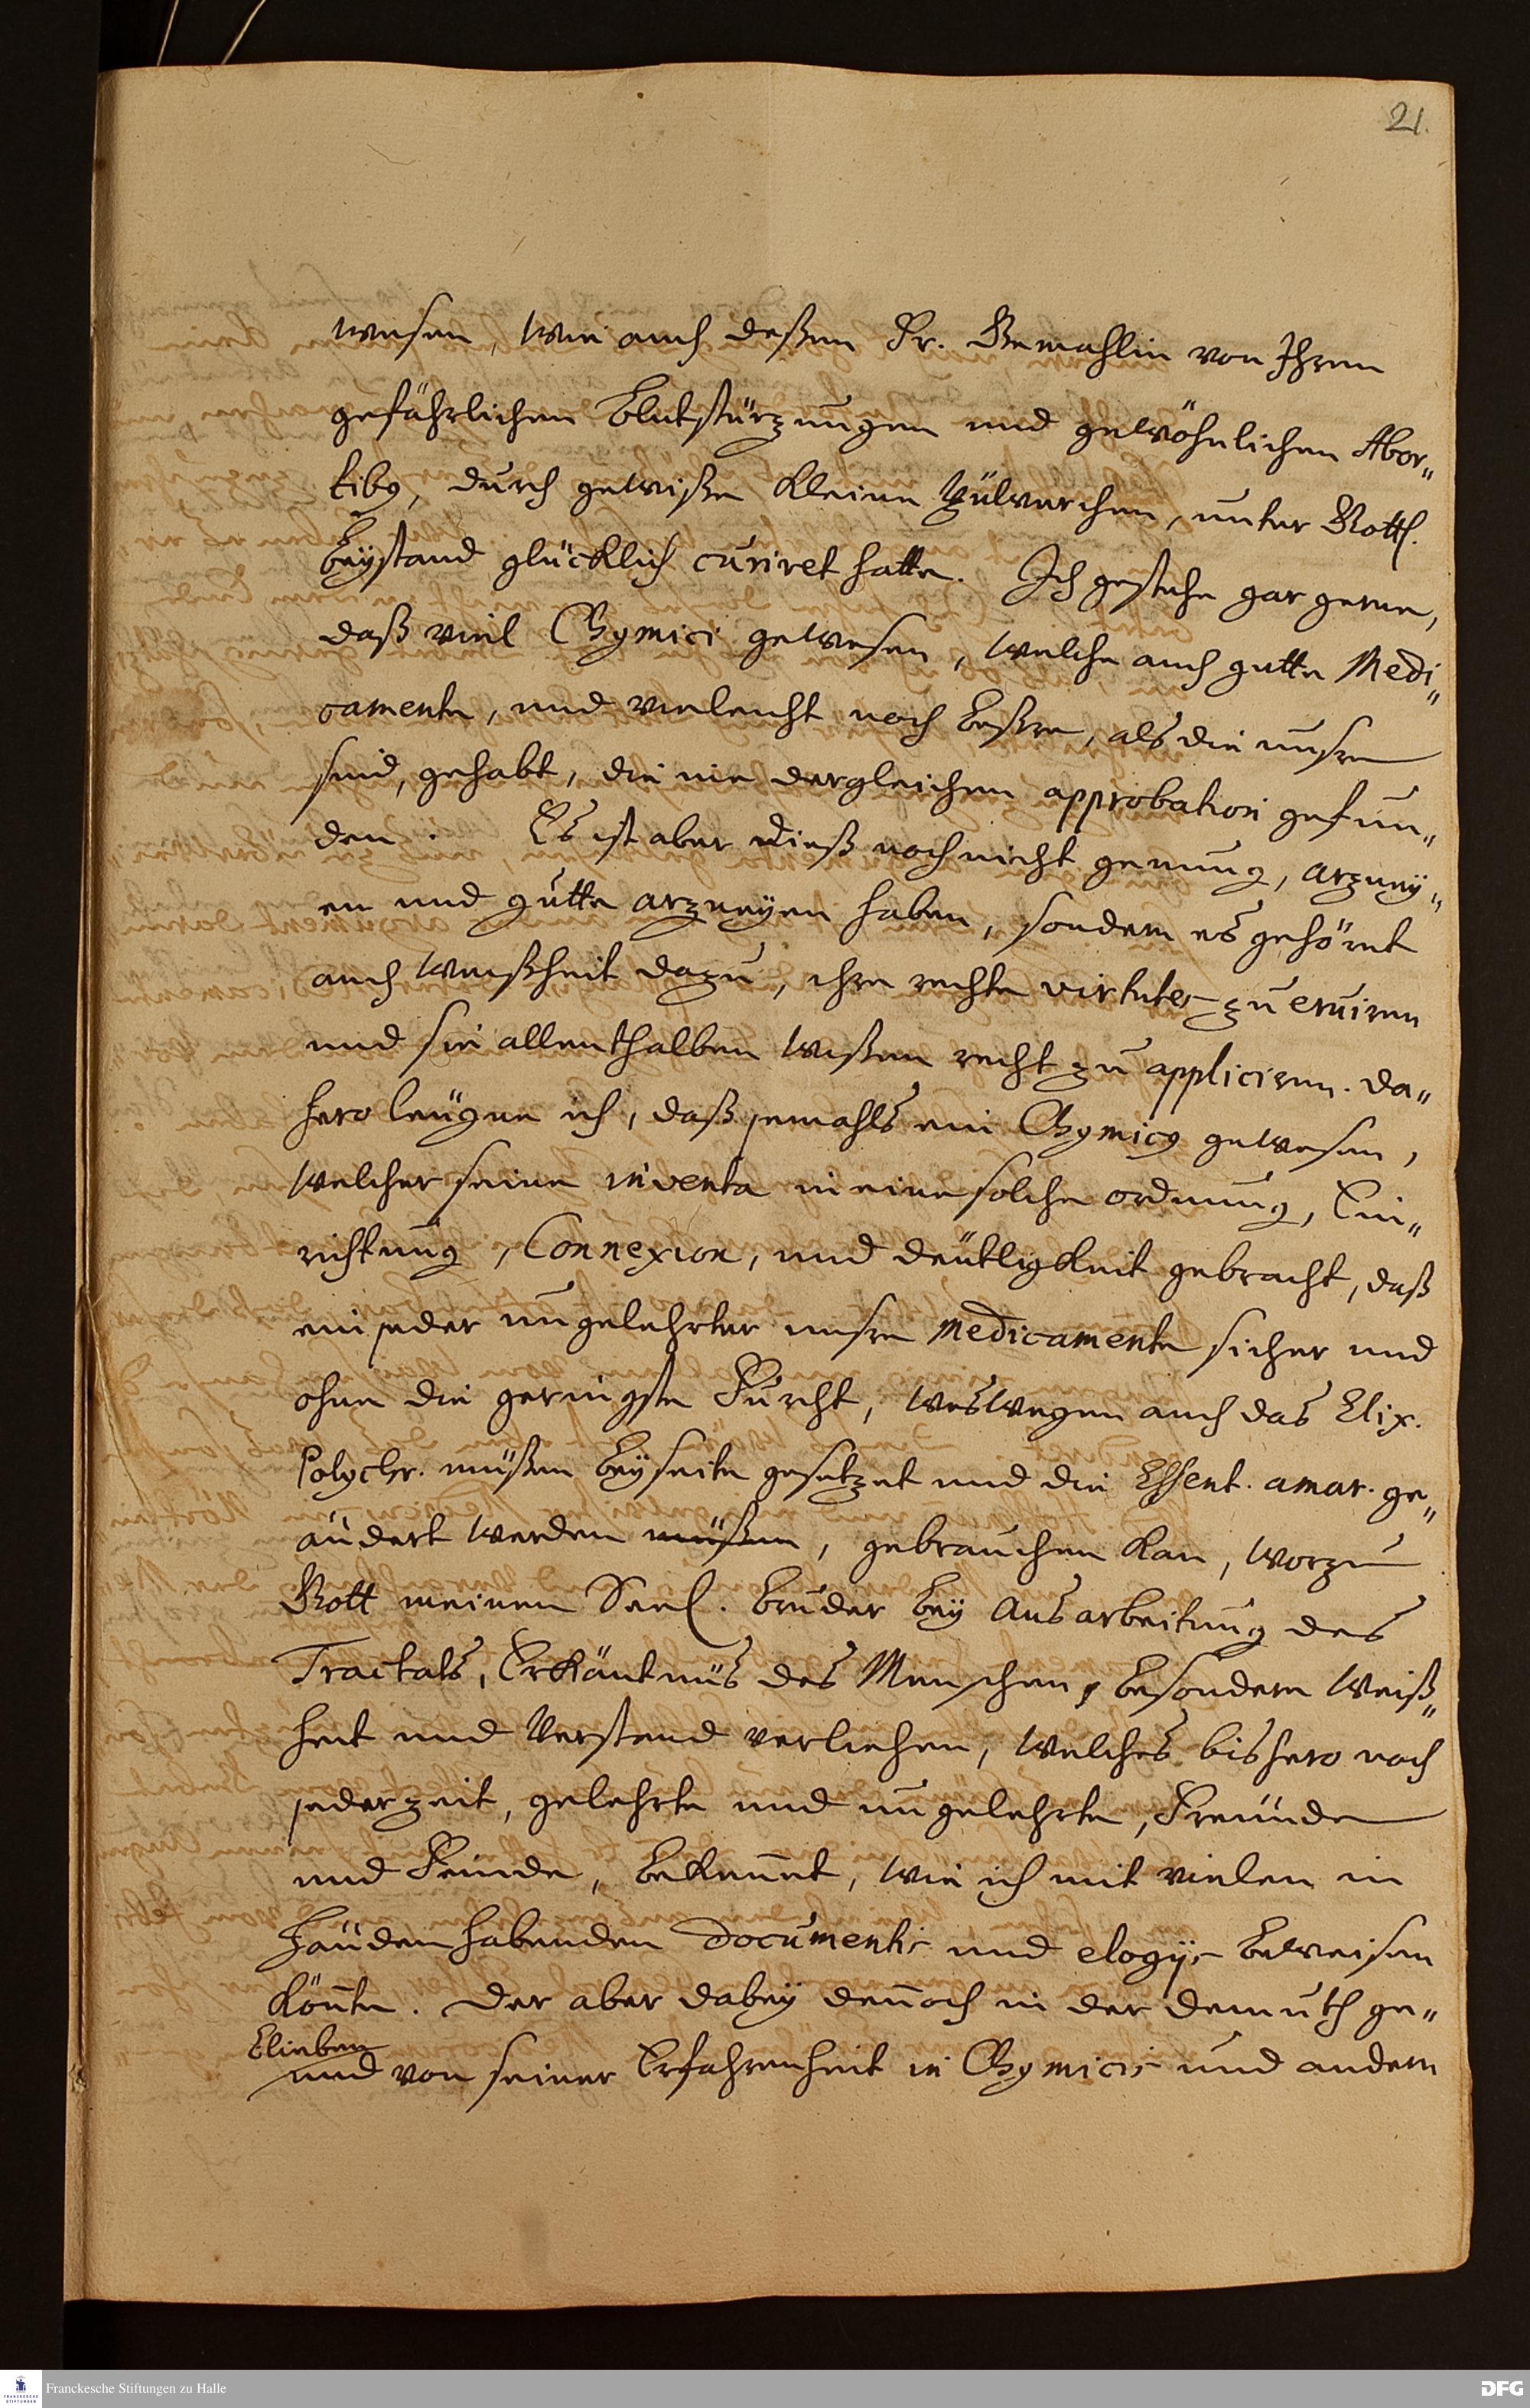 21.
wesen, wie auch deßen Fr. Gemahlin von Ihren
gefährlichen Blutstürzungen und gewöhnlichen Abor„
tibus, durch gewiße kleine Pülverchen, unter Göttl.
beystand glücklich curiret hatte. Ich gestehe gar gerne,
daß viel Chymici gewesen, welche auch gutte Medi„
camente, und vieleicht noch beßre, als die unsre
sind, gehabt, die nie dergleichen approbation gefun„
den. Es ist aber dieß noch nicht genung, arzney„
en und gutte arzneyen haben, sondern es gehöret
auch Weißheit dazu, ihre rechte virtutes zu eruiren
und sie allenthalben wißen recht zu appliciren. da„
hero leugne ich, daß jemahls ein Chymicus gewesen,
welcher seine inventa in eine solche ordnung, Ein„
richtung, Connexion, und deutligkeit gebracht, daß
ein jeder ungelehrter unsre medicamente sicher und
ohne die geringste Furcht, weswegen auch das Elix.
Polychr. müßen beyseite gesetzet und die Essent. amar. ge„
ändert werden müßen, gebrauchen kan, worzu
Gott meinem Seel. bruder bey Ausarbeitung des
Tractats, Erkäntnüs des Menschen, besondern Weiß„
heit und Verstand verliehen, welches bishero noch
jederzeit, gelehrte und ungelehrte, Freunde
und Feinde, bekennet, wie ich mit vielen in
Händen habenden documentis und elogijs beweisen
könte. der aber dabey dennoch in der demuth ge„
blieben
und von seiner Erfahrenheit in Chymicis und andern
Franckesche Stiftungen zu Halle
DFG